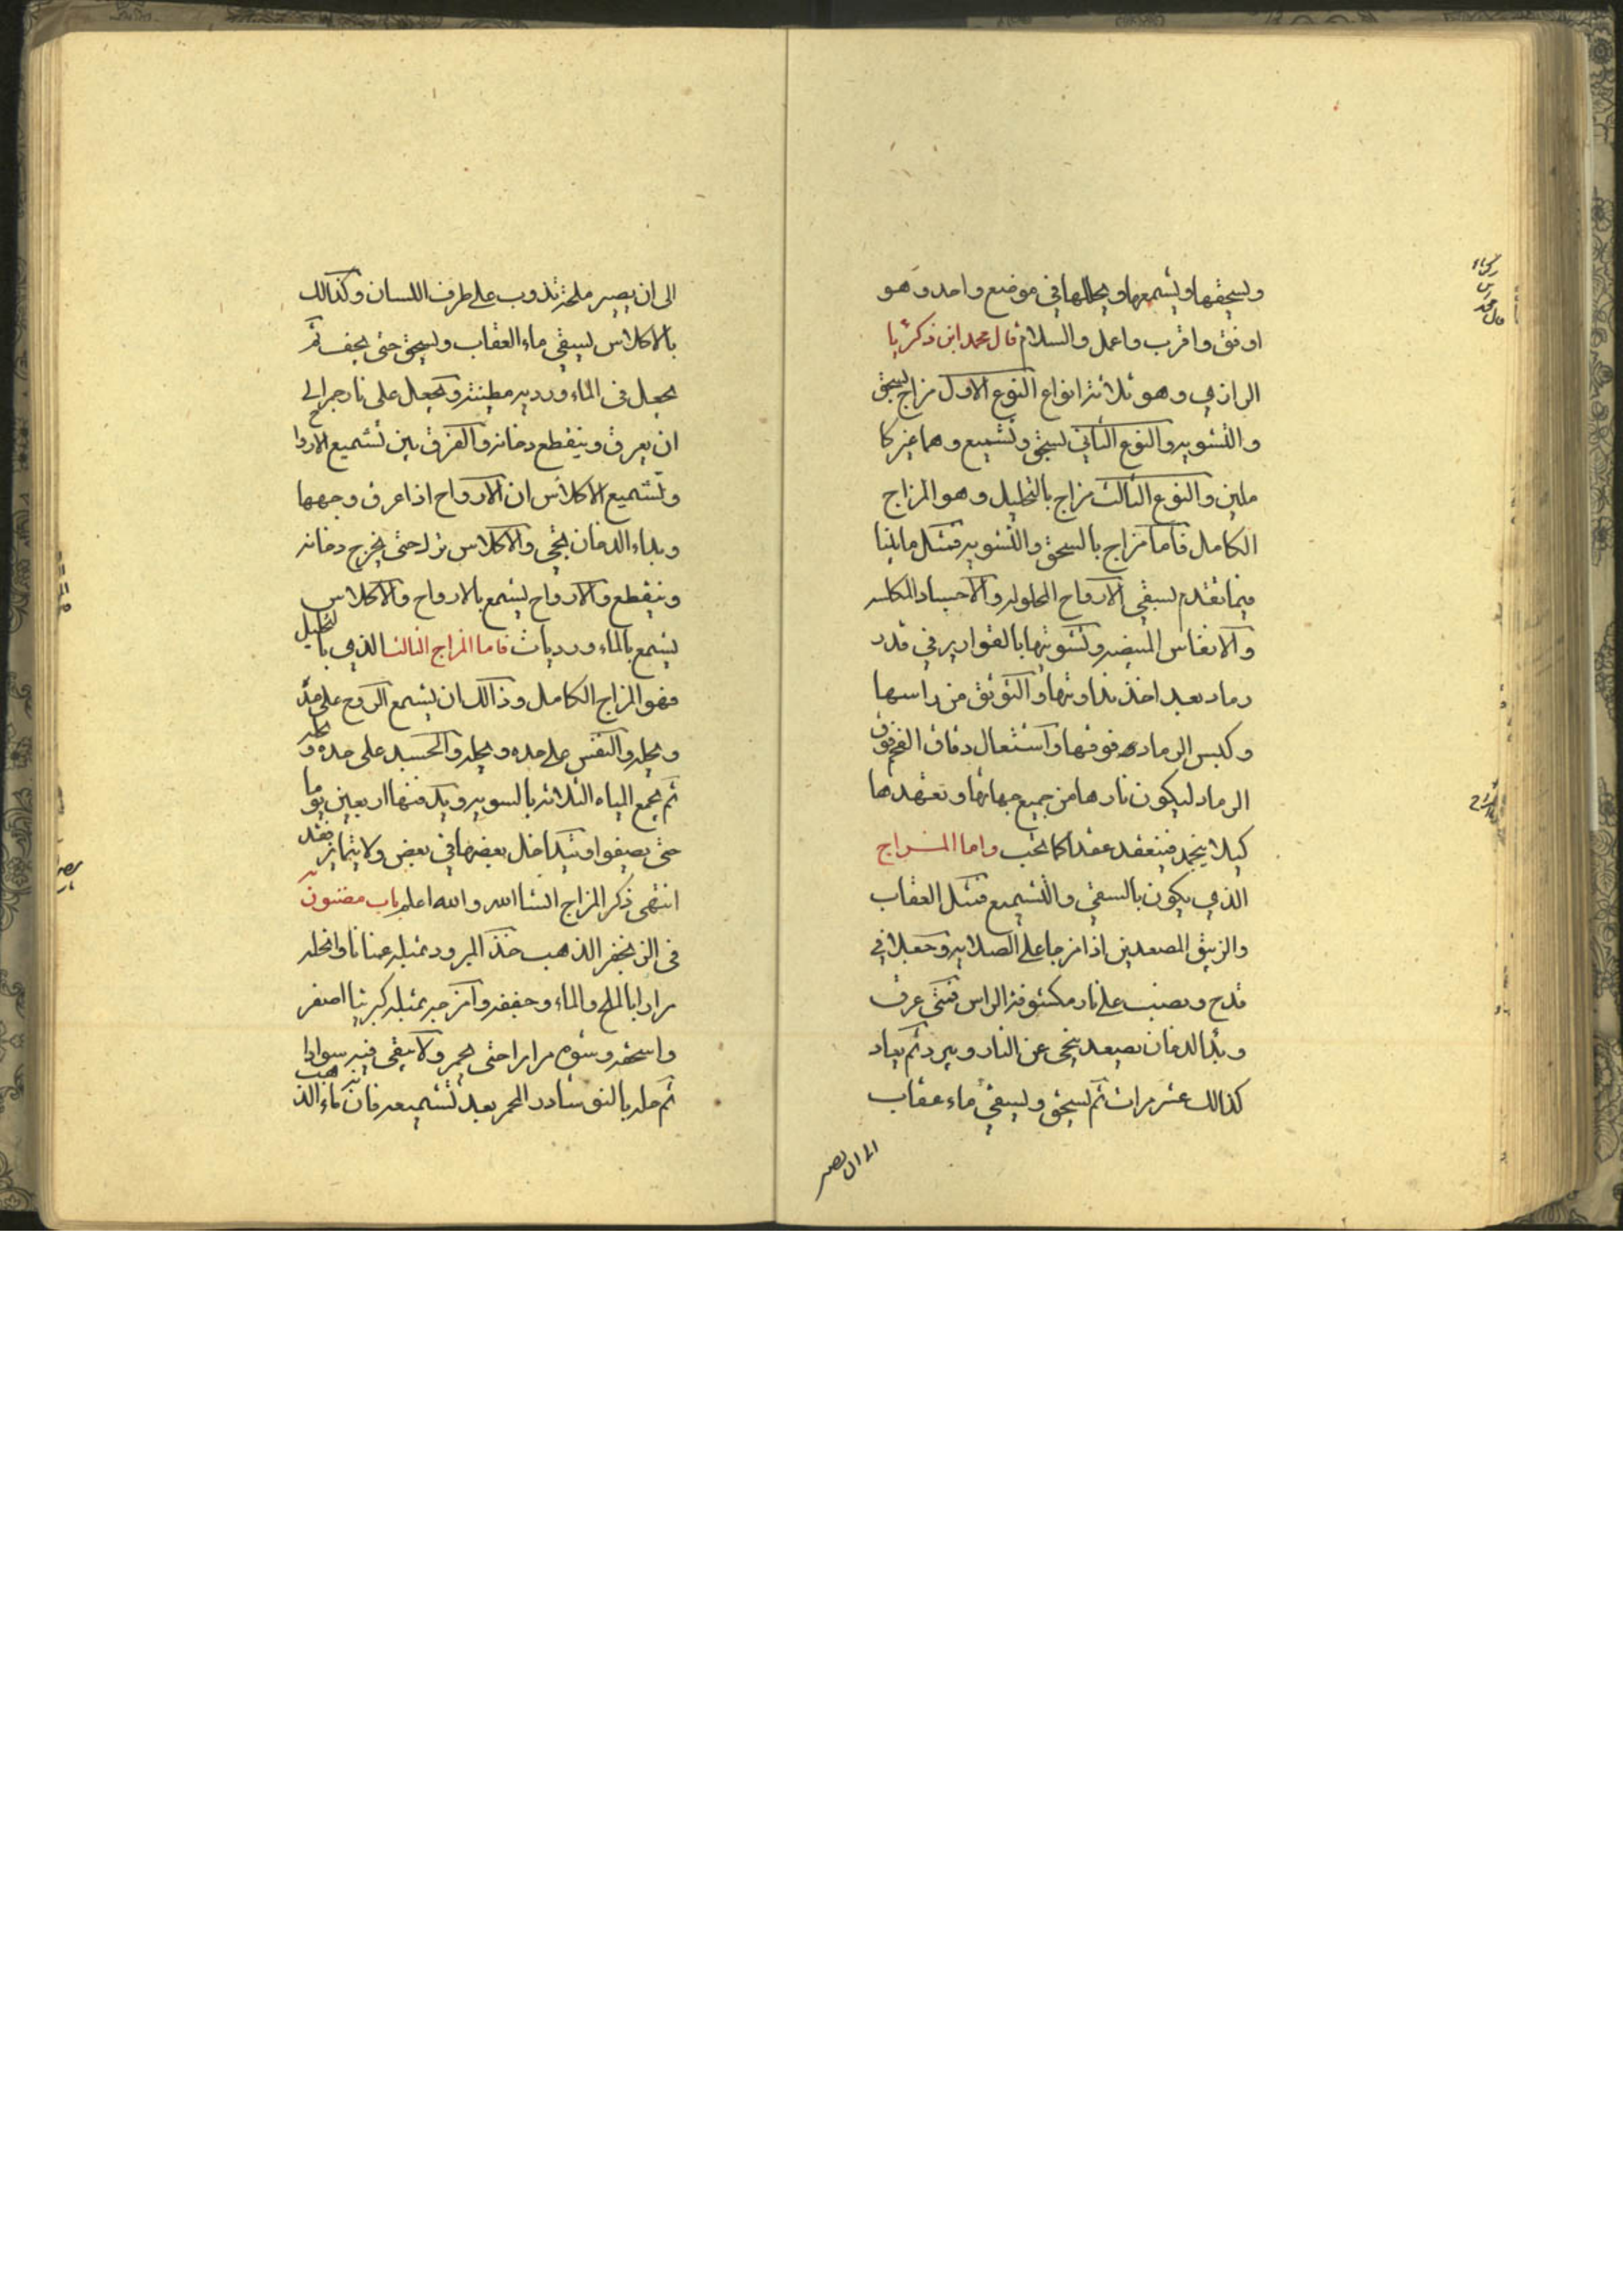 ويسحقها ويشمعها ويحللها في موضع واحد وهو
اوفق واقرب واعمل والسلام قال محمد ابن زكريا
الرازي وهو ثلاثة انواع النوع الاول مزاج بسحق
والتشويه والنوع الثاني بسحق وتشميع وهما غير كا
ملين والنوع الثالث مزاج بالتحليل وهو المزاج
الكامل فاما مزاج بالسحق والتشويه فمثل مابينا
فيما تقدم بسقي الارواح المحلوله والاجساد المكلسه
والانفاس المبيضه وتشويتها بالقوارير في قدر
رماد بعد اخذ نداوتها والتوثق من راسها
وكبس الرماد فوقها واشتعال دقاق الفحم فوق
الرماد ليكون نارها من جميع جهاتها وتعهدها
كيلا ينجمد فينعقد عقدا كما تحب واما المزاج
الذي يكون بالسقي والتشميع فمثل العقاب
والزيبق المصعدين اذا مزجا على الصلايه وجعلا في
قدح ونصب على نار مكشوفة الراس فمتى عرق
وبدا الدخان يصعد ينحى عن النار ويبرد ثم يعاد
كذالك عشر مرات ثم يسحق ويسقى ماء عقاب
الى ان يصير
الى ان يصير ملحة تذوب على طرف اللسان وكذالك
بالاكلاس يسقى ماء العقاب ويسحق حتى يجف ثم
يجعل في الماء ورديه مطينة ويجعل على نار جمر الى
ان يعرق وينقطع دخانه والفرق بين تشميع الاروا
وتشميع الاكلاس ان الارواح اذا عرق وجهها
وبداء الدخان نحي والاكلاس تزاد حتى يخرج دخانه
وينقطع والارواح يشمع بالارواح والاكلاس
يشمع بالماء ورديات فاما المزاج الثالث الذي بالتحليل
فهو المزاج الكامل وذالك ان يشمع الروح على حده
ويحله والنفس على حده ويحله والجسد على حده ويحله
ثم يجمع المياه الثلاثه بالسويه ويدفنها اربعين يوما
حتى يصفوا ويتداخل بعضها في بعض ولا يتمايز
انتهى ذكر المزاج انشا الله والله اعلم باب مضنون
في الزنجفر الذهب خذ المبرود بمثله
مرارا بالملح والماء وجففه وامزجه بمثله كبريتا اصفر
واسحقه وشوه مرارا حتى يحمر ولا يبقى فيه سوادا
ثم حله بالنوشادر المحمر بعد تشميعه فان ماء الذهب